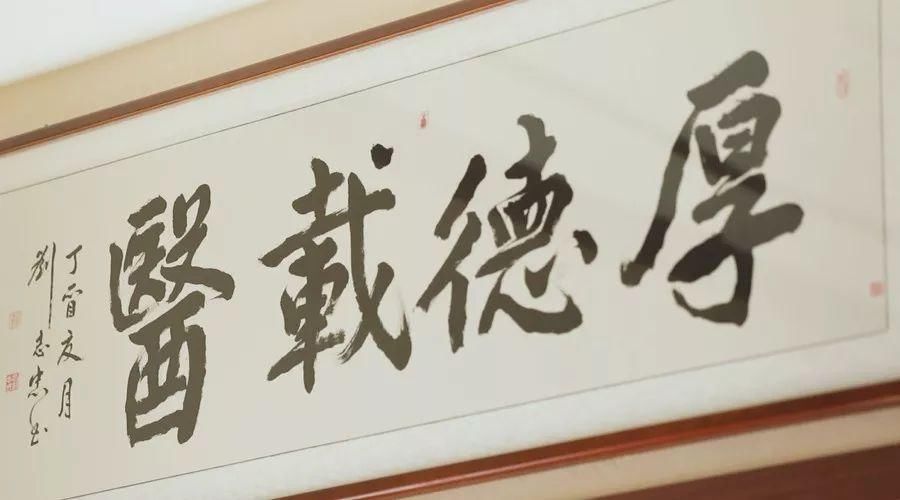 厚德載醫
丁酉夏月
劉志忠书